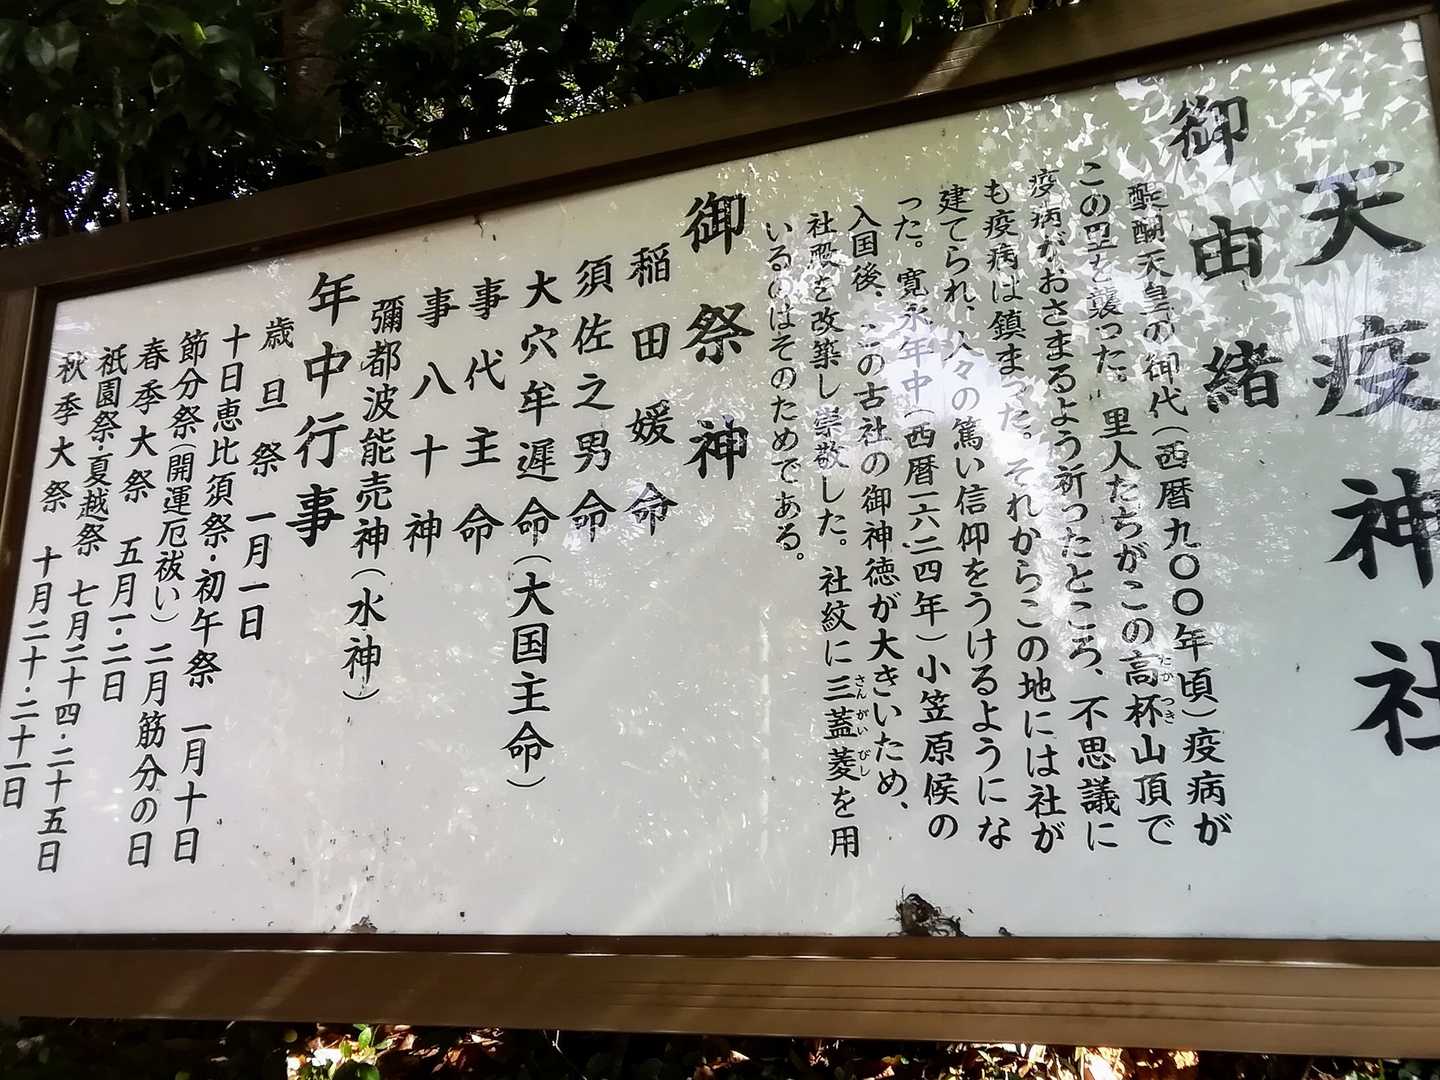 天疫神社
御由緒
醍醐天皇の御代(西暦九〇〇年頃)疫病が
この里を襲った。里人たちがこの高杯山頂で
たか つき
疫病がおさまるよう祈ったところ、不思議に
も疫病は鎮まった。それからこの地には社が
建てられ、人々の篤い信仰をうけるようにな
った。寛永年中(西暦一六二四年)小笠原候の
入国後、この古社の御神徳が大きいため、
社殿を改築し崇敬した。社紋に三蓋菱を用
さん がい びし
いるのはそのためである。
御祭神
稲田媛命
須佐之男命
大穴牟遲命(大国主命)
事代主命
事八十神
彌都波能売神(水神)
年中行事
歳旦祭 一月一日
十日恵比須祭・初午祭 一月十日
節分祭(開運厄祓い) 二月節分の日
春季大祭 五月一・二日
祇園祭・夏越祭 七月二十四・二十五日
秋季大祭 十月二十・二十一日